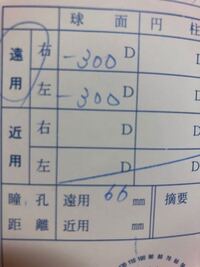 球面 円柱
遠用 右 -300 D D
左 -300 D D
近用 右 D D
左 D D
瞳孔距離 遠用 66 mm 摘要
近用 mm